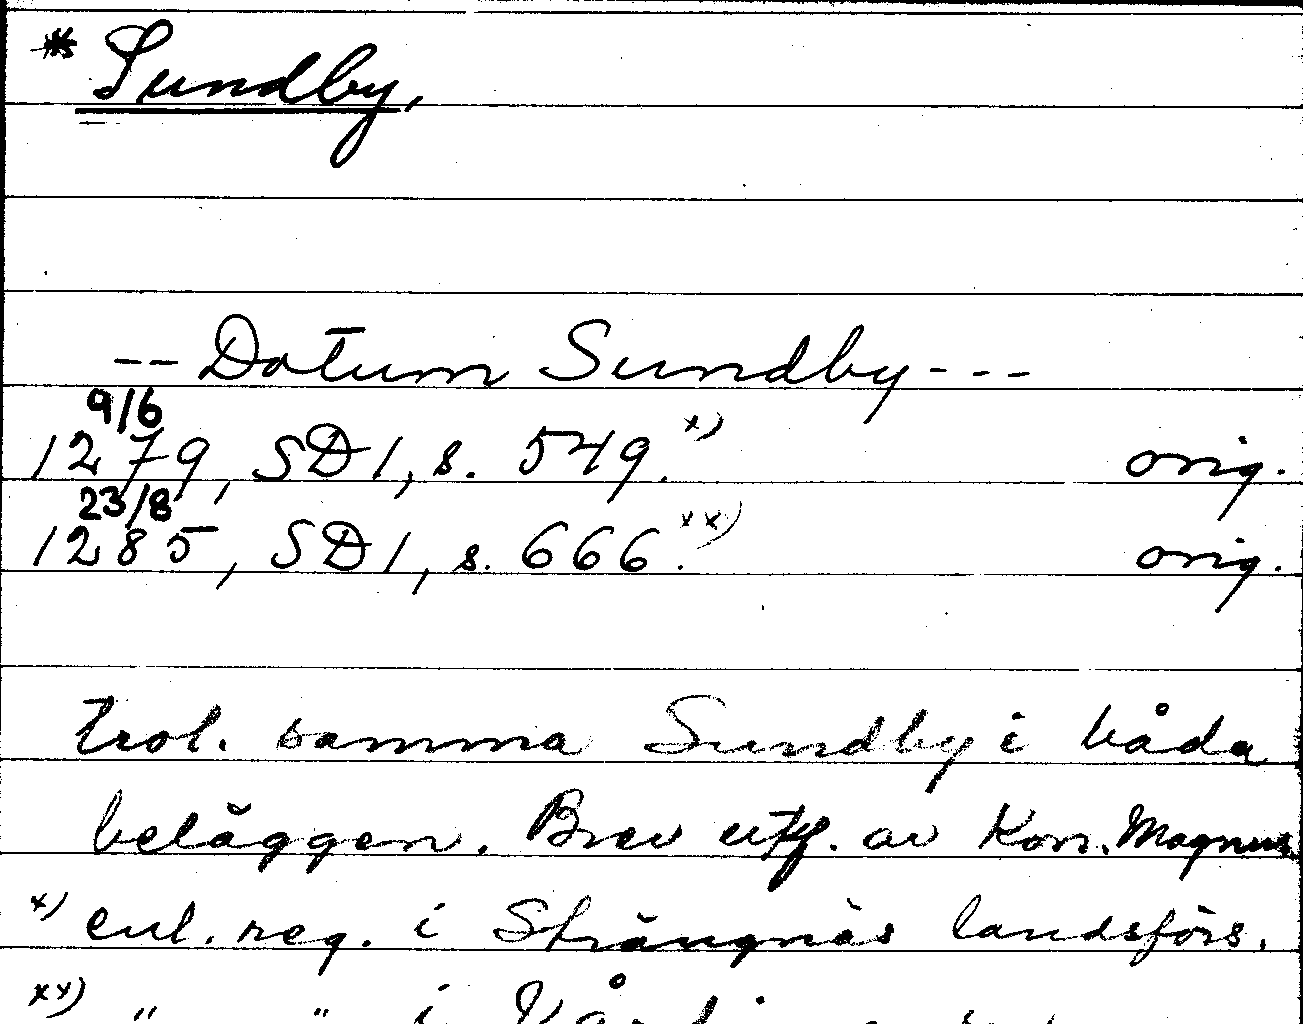 * Sundby,
-- Datum Sundby ---
9/6
1279, SD 1, s. 549. x) orig.
23/8
1285, SD 1, s. 666. xx) orig.
trol. samma Sundby i båda
beläggen. Brev utf. av Kon. Magnus
x) enl. reg. i Strängnäs landsförs.
xx) " " i